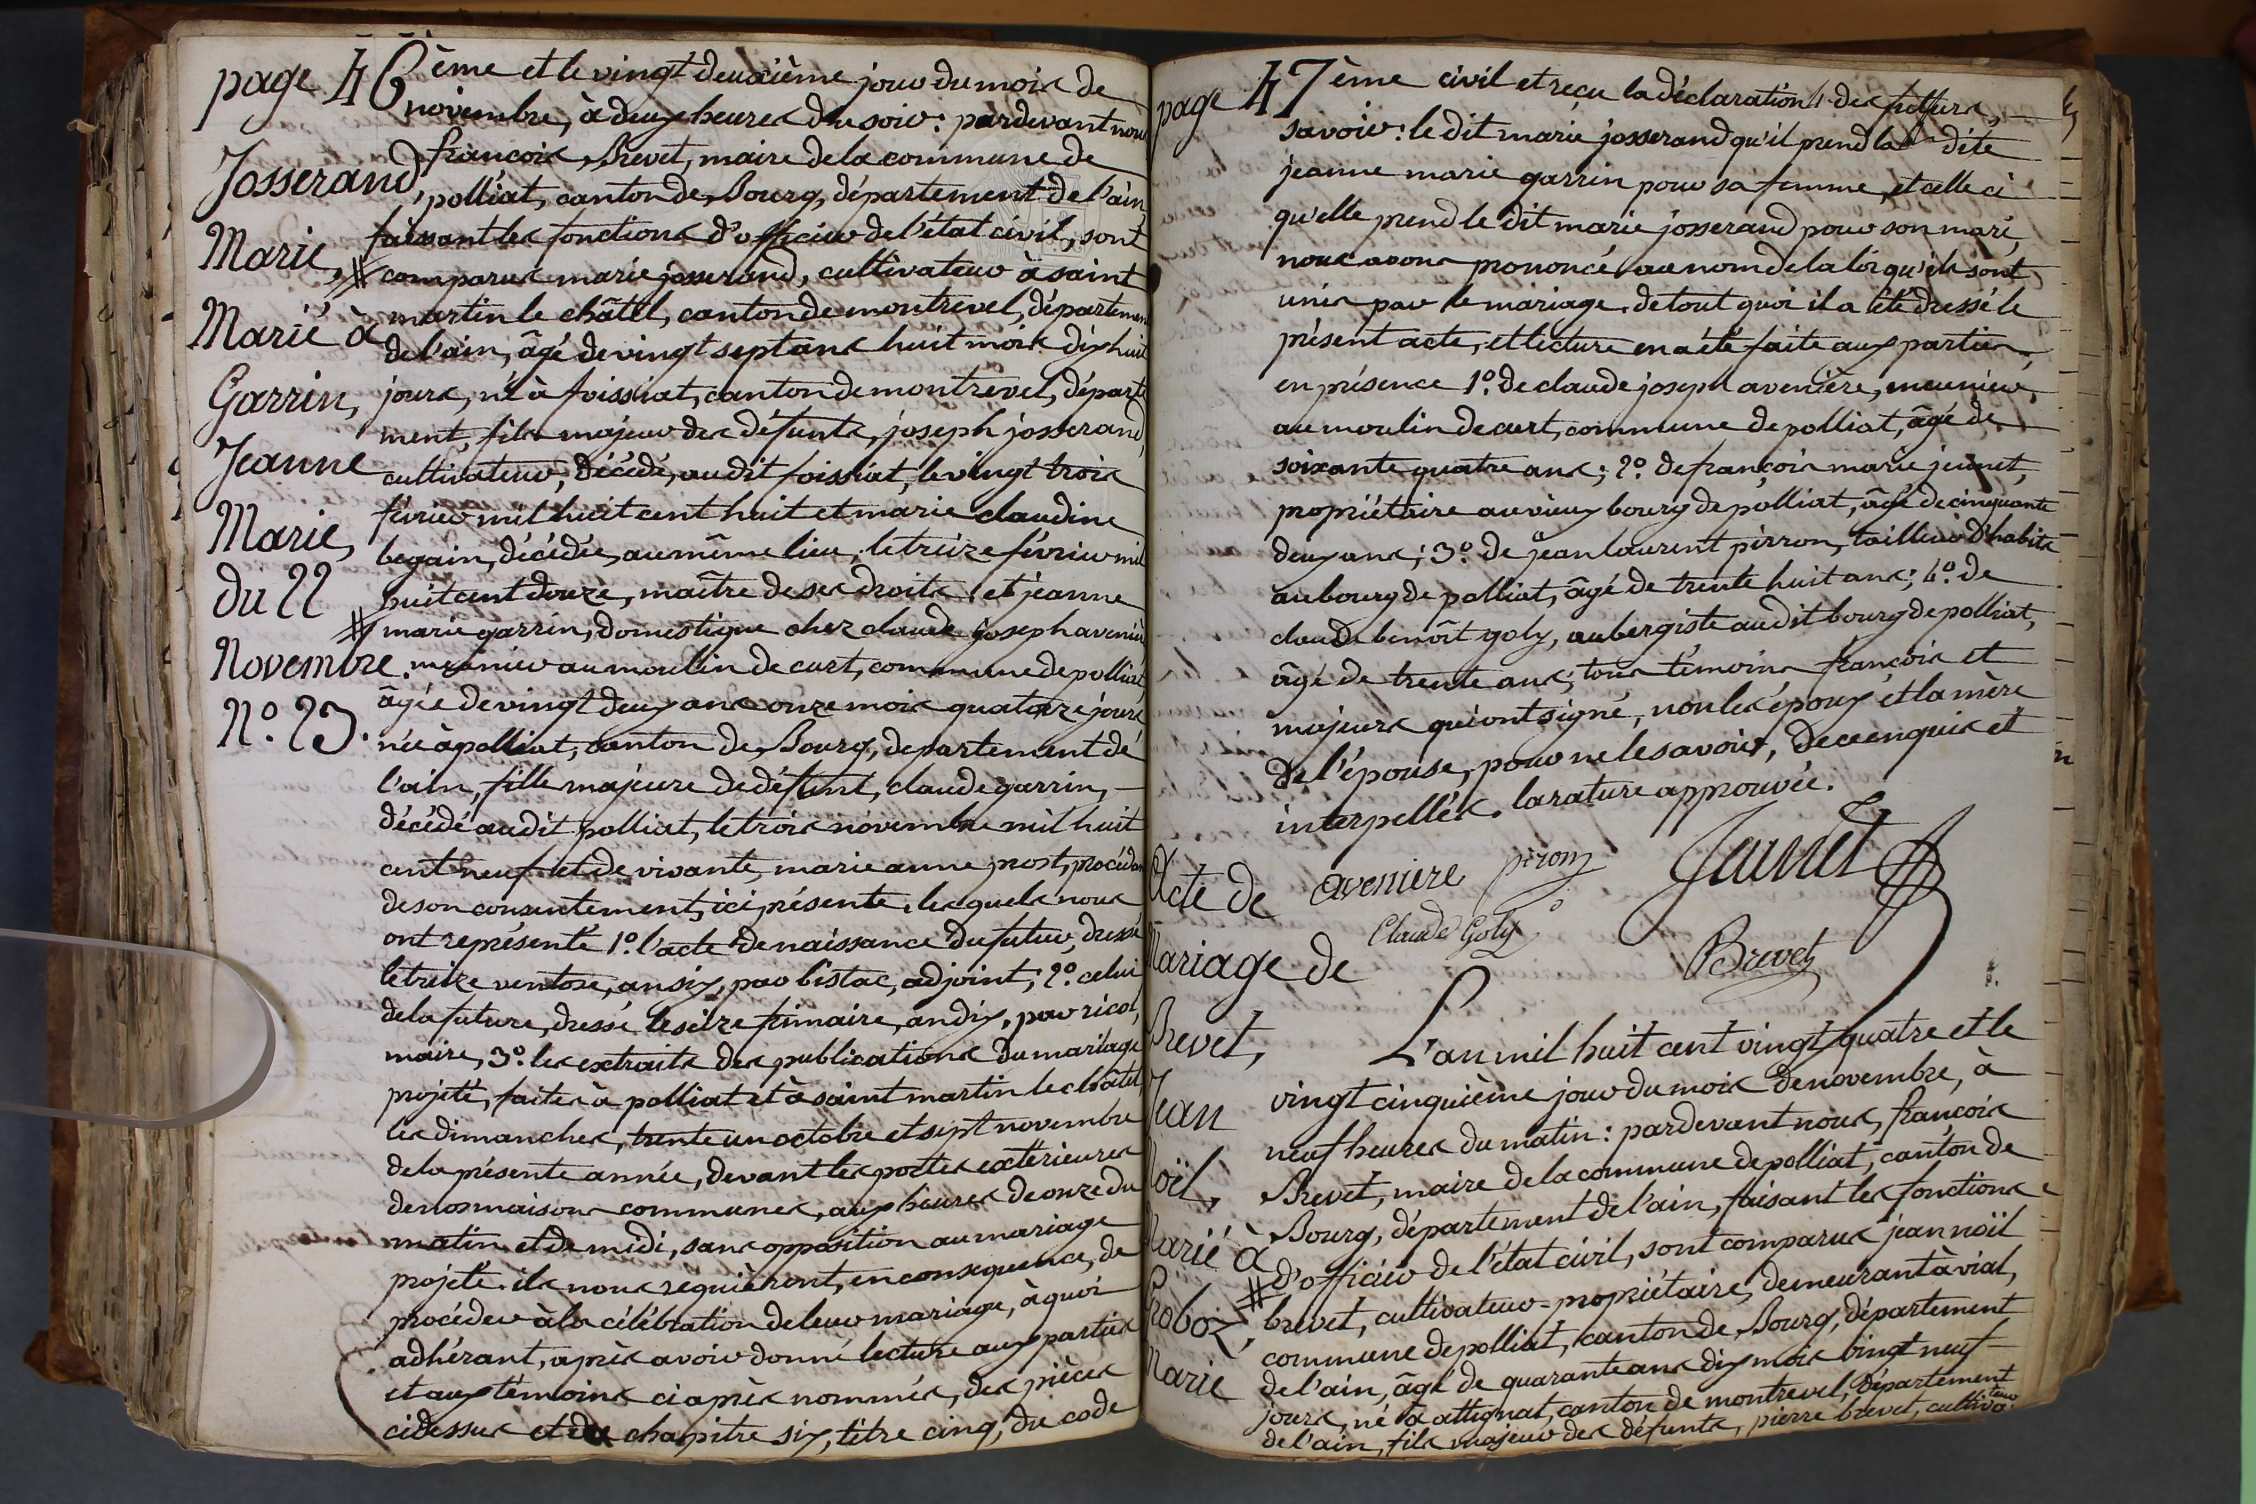 page 46ème et le vingt deuxième jour du mois de
novembre, à deux heures du soir: pardevant nous
françois Brevet, maire de la commune de
polliat, canton de Bourg, département de l'ain,
faisant les fonctions d'officier de l'état civil, sont
comparus marie josserand, cultivateur à saint
martin le châtel, canton de montrevel, département
de l'ain, âgé de vingt sept ans huit mois dix huit
jours, né à foissiat, canton de montrevel, départe
ment, fils majeur des défunts, joseph josserand,
cultivateur, décédé, audit foissiat, le vingt trois
février mil huit cent huit et marie claudine
begain, décédée, au même lieu, le treize février mil
huit cent douze, maître de ses droits et jeanne
marie garrin, domestique chez claude joseph avenière
meunier au moulin de curt, commune de polliat
âgée de vingt deux ans onze mois quatorze jours
née à polliat, canton de Bourg, département de
l'ain, fille majeure de défunt, claude garrin,
décédé audit polliat, le trois novembre mil huit
cent neuf et de vivante, marie anne prost, procédant
de son consentement, ici présente. lesquels nous
ont représenté 1º. l'acte de naissance du futur, dressé
le treize ventose, an six, par bistac, adjoint; 2º. celui
de la future, dressé le seize frimaire, an dix, par ricol,
maire, 3º. les extraits des publications du mariage
projeté, faites à polliat et à saint martin le châtel,
les dimanches, trente un octobre et sept novembre
de la présente année, devant les portes extérieures
de nos maisons communes, aux heures de onze du
matin et de midi, sans opposition au mariage
projeté. ils nous requièront, en conséquence, de
procéder à la célébration de leur mariage, à quoi
adhérant, après avoir donné lecture aux parties
et aux témoins ci après nommés, des pièces
cidessus et du chapitre six, titre cinq, du code
Josserand,
Marie,
Marié à
Garrin,
Jeanne
Marie,
du 22
Novembre.
Nº. 23.
page 47ème civil et reçu la déclaration des futurs,
savoir: le dit marie josserand qu'il prend la dite
jeanne marie garrin pour sa femme, et celle ci
qu'elle prend le dit marie josserand pour son mari,
nous avons prononcé au nom de la loi qu'ils sont
unis par le mariage. de tout quoi il a été dressé le
présent acte, et lecture en a été faite aux parties,
en présence 1º. de claude joseph avenière, meunier,
au moulin de curt, commune de polliat, âgé de
soixante quatre ans; 2º. de françois marie jeunet,
propriétaire au vieux bourg de polliat, âgé de cinquante
deux ans; 3º. de jean laurent pirron, tailleur d'habits
au bourg de polliat, âgé de trente huit ans; 4º. de
claude benoît goly, aubergiste audit bourg de polliat,
âgé de trente ans; tous témoins françois et
majeurs qui ont signé, non les époux et la mère
de l'épouse, pour ne le savoir, de ce enquis et
interpellés. la rature approuvée.
avenière piron Jeunet
Claude Goly
Brevet
Acte de
Mariage de
Brevet,
Jean
Noël,
Marié à
Marie
L'an mil huit cent vingt quatre et le
vingt cinquième jour du mois de novembre, à
neuf heures du matin: pardevant nous, françois
Brevet, maire de la commune de polliat, canton de
Bourg, département de l'ain, faisant les fonctions
d'officier de l'état civil, sont comparus jean noël
brevet, cultivateur-propriétaire, demeurant à vial,
commune de polliat, canton de Bourg, département
de l'ain, âgé de quarante ans dix mois vingt neuf
jours, né à attignat, canton de montrevel, département
de l'ain, fils majeur des défunts, pierre brevet, cultivateur